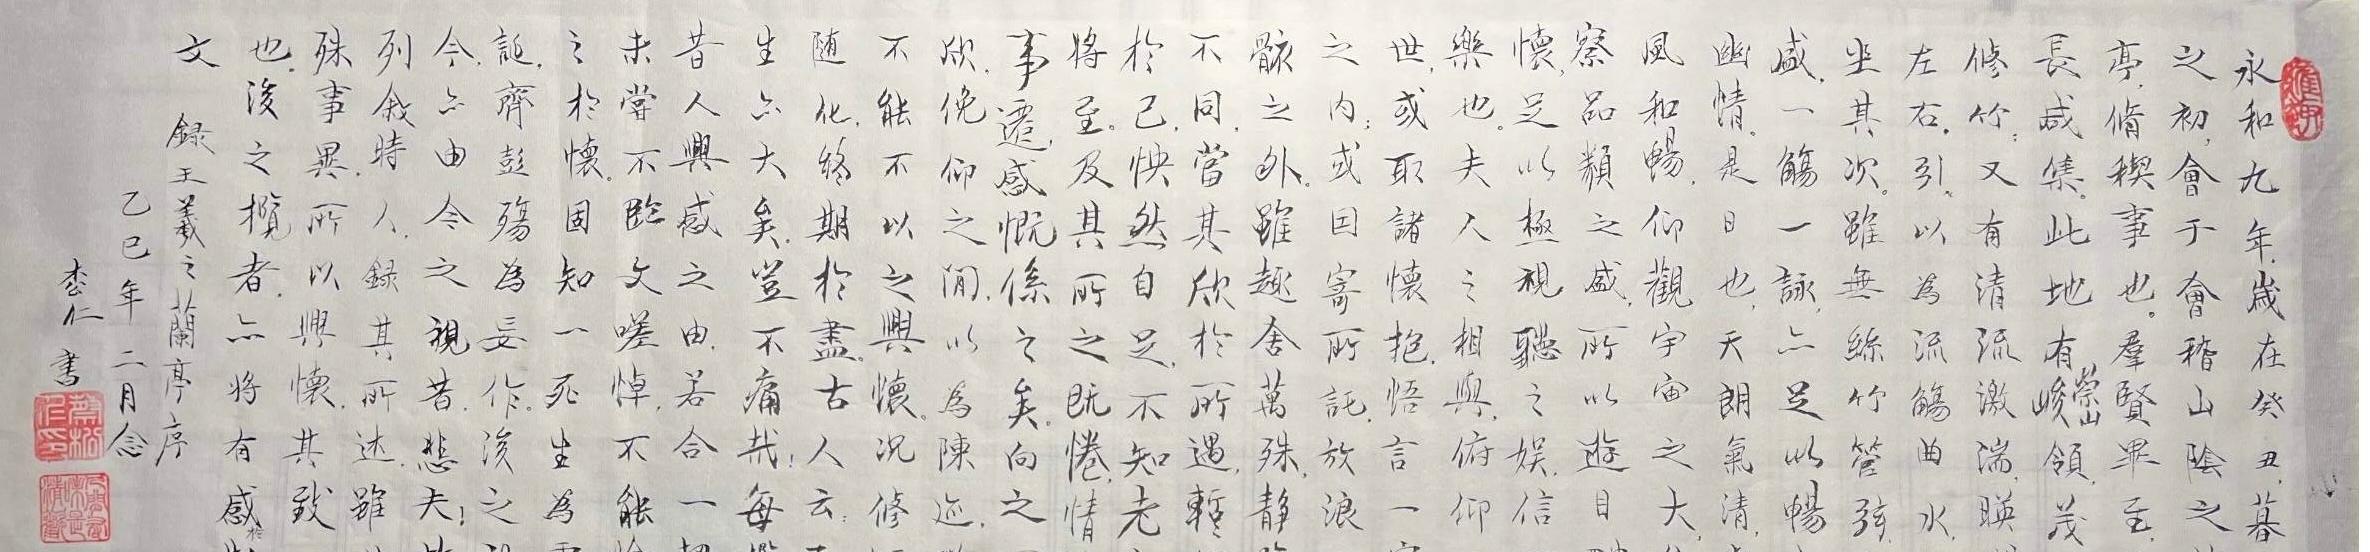 永和九年,歲在癸丑,暮
之初,會于會稽山陰之
亭,脩稧事也。羣賢畢至,
長咸集。此地有崇山峻領,茂
修竹;又有清流激湍,暎
左右。引以為流觴曲水,
坐其次。雖無絲竹管弦
盛,一觴一詠,亦足以暢
幽情。是日也,天朗氣清,
風和暢,仰觀宇宙之大,
察品類之盛,所以遊目
懷,足以極視聽之娱,信
樂也。夫人之相與,俯仰
世,或取諸懷抱,悟言一
之内;或因寄所託,放浪
骸之外。雖趣舍萬殊,静
不同,當其欣於所遇,暫
於己,怏然自足,不知老
將至。及其所之既惓,情
事遷,感慨係之矣。向之
欣,俛仰之閒,以為陳迹,
不能不以之興懷。况修
随化,終期於盡。古人云:
生亦大矣,豈不痛哉!每
昔人興感之由,若合一
未嘗不臨文嗟悼,不能
之於懷。固知一死生為
誕,齊彭殤為妄作。後之
今,亦由今之視昔。悲夫!
列叙時人,録其所述,雖
殊事異,所以興懷,其致
也。後之攬者,亦将有感於
文
録王羲之蘭亭序
乙巳年 二月念
书